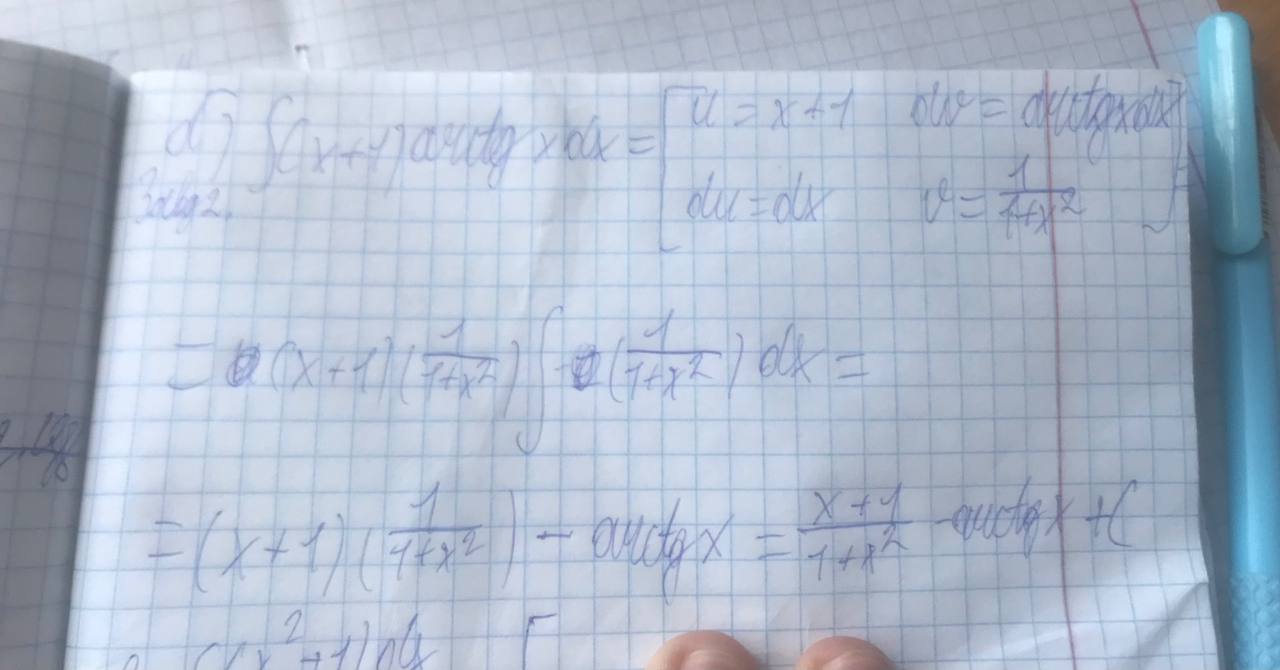 б) ∫(x+1) arctg x dx = [ u = x+1 dv = arctg x dx
du = dx v = 1/(1+x²) ] =
= (x+1)(1/(1+x²)) ∫ (1/(1+x²)) dx =
= (x+1)(1/(1+x²)) - arctg x = (x+1)/(1+x²) - arctg x + C
(x²+1) dx [